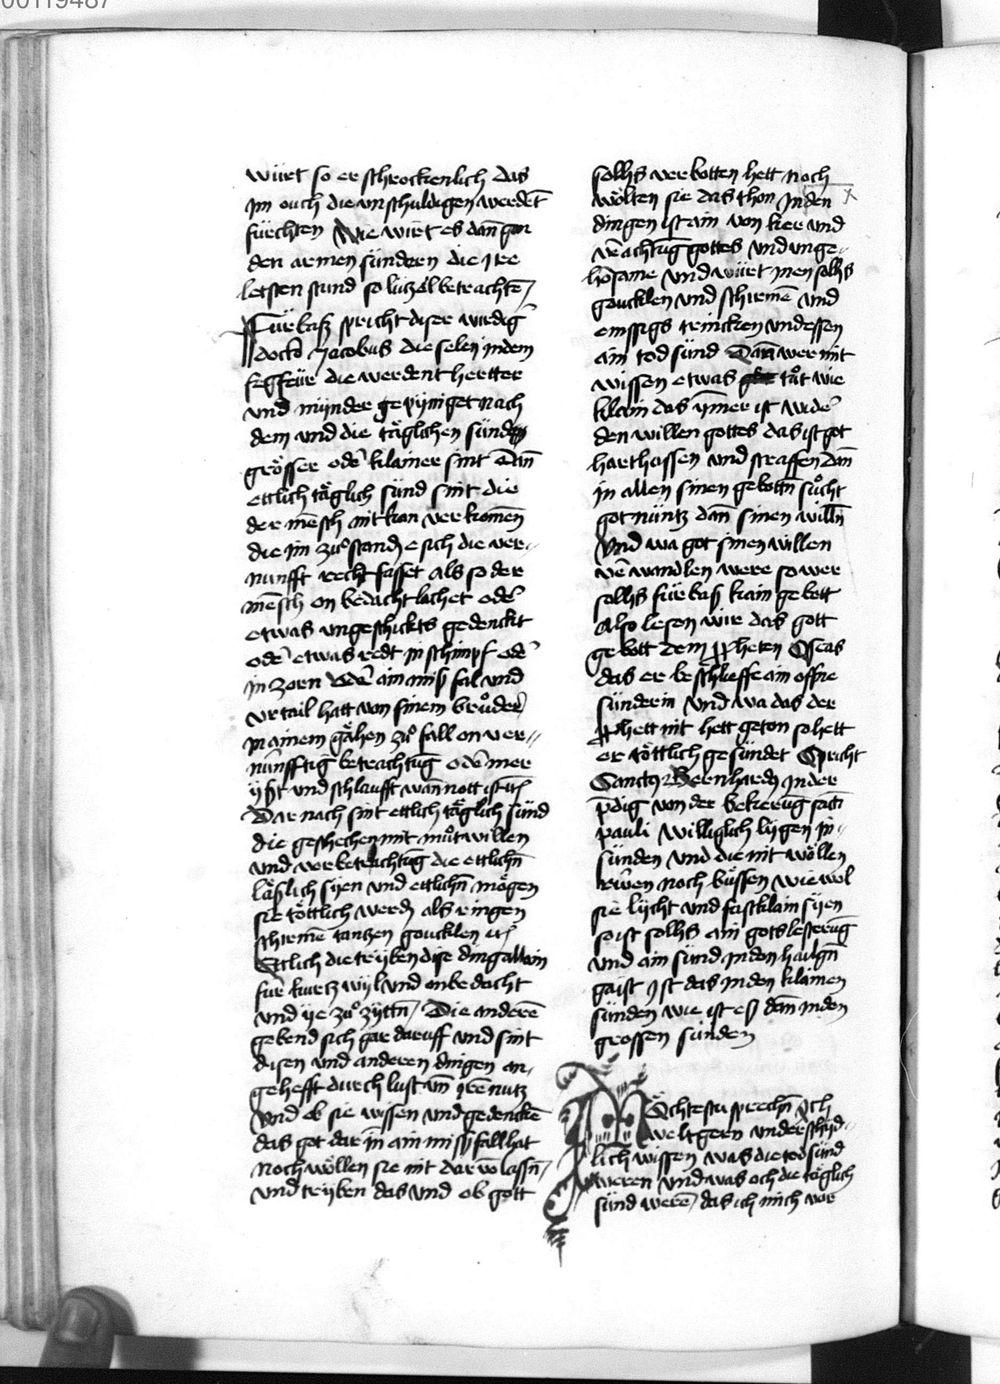 00119487
würt so erschrockenlich das
jm ouch die vnschuldigen werdēt
fürchten Wie wirt es dan̄ gar
den armen sündern die jre
letsten stund so lützel betrachtē
Fürbaß spricht diser wirdig
docto Jacobus die selen jn dem
fegfeür die werdent hertter
vnd mynder gepyniget nach
dem vnd die täglichen sünden
grösser odē klainer sint Dan̄
ettlich täglich sünd sint die
der mēsch nit kan verkomen
die jm zuͦ stand e sich die ver-
nunfft recht fasset als so der
mēsch on bedacht lachet odē
etwas vngeschickts gedenckt
odē etwas redt jn schimpf odē
jn zorn Odē ain miß fal vnd
vrtail hatt von sinem bruͦder
jn ainem gähen zuͦ fall on ver-
nünfftig betrachtug odē mer
yßt vnd schlaufft wan̄ nott ist
Dar nach sint ettlich täglich sünd
die geschechen mit muͦtwillen
vnd vorbetrachtūg die ettlichn̄
läßlich syen vnd ettlichn̄ mögen
sie töttlich werdn̄ als ringen
schirmē tantzen goucklen
Ettlich die tryben dise ding allain
für kurtzwyl vnd onbedacht
vnd ye zuͦ zyttn̄ Die anderē
gebend sich gar daruff vnd sint
disen vnd anderen dingen an-
gehefft durch lust vn̄ jrē nutz
Vnd ob sie wissen vnd gedenckē
das got dar jn̄ ain miß fall hat
noch wöllen sie nit dar vō lassn̄
vnd tryben das vnd ob gott
sollis verbotten hett noch
wölten sie das thon Jn den
dingen ist ain von keer vnd
vēachtūg gottes vnd vnge-
hōsame vnd würt jnen sollis
goucklen vnd schirmē vnd
emssigs trincken vnd essen
ain tod sünd Dan̄ wer mit
wissen etwas tuͦt wie
klain das ymer ist widē
den willen gottes das ist got
hart hassen vnd straffen Dan̄
in allen sinen gebottn̄ suͦcht
got nüntz dan̄ sinen willn̄
Vnd wa got sinen willen
vēwandlen were so wer
sollis fürbaß kain gebott
Also lesen wir das gott
gebott dem ppheten Oseas
das er beschlieffe ain offne
sünderin vnd wa das der
pphett nit hett geton so hett
er töttlich gesündet Spricht
Sanctus Bernhardus jn der
pdig von der bekerūg sāti
pauli williglich lygen jn
sünden vnd die nit wöllen
rewen noch büssen wie wol
sie lycht vnd fast klain syen
so ist sollis ain gots lesterūg
vnd ain sünd jn den hailgn̄
gaist Jst das jn den klainen
sünden wie ist es dan̄ jn den
grossen sünden
Möchtestu sprechn̄ Jch
welt gern vnderschyd-
lich wissen was die tod sünd
weren vnd was och die täglich
sünd werē das ich mich vor